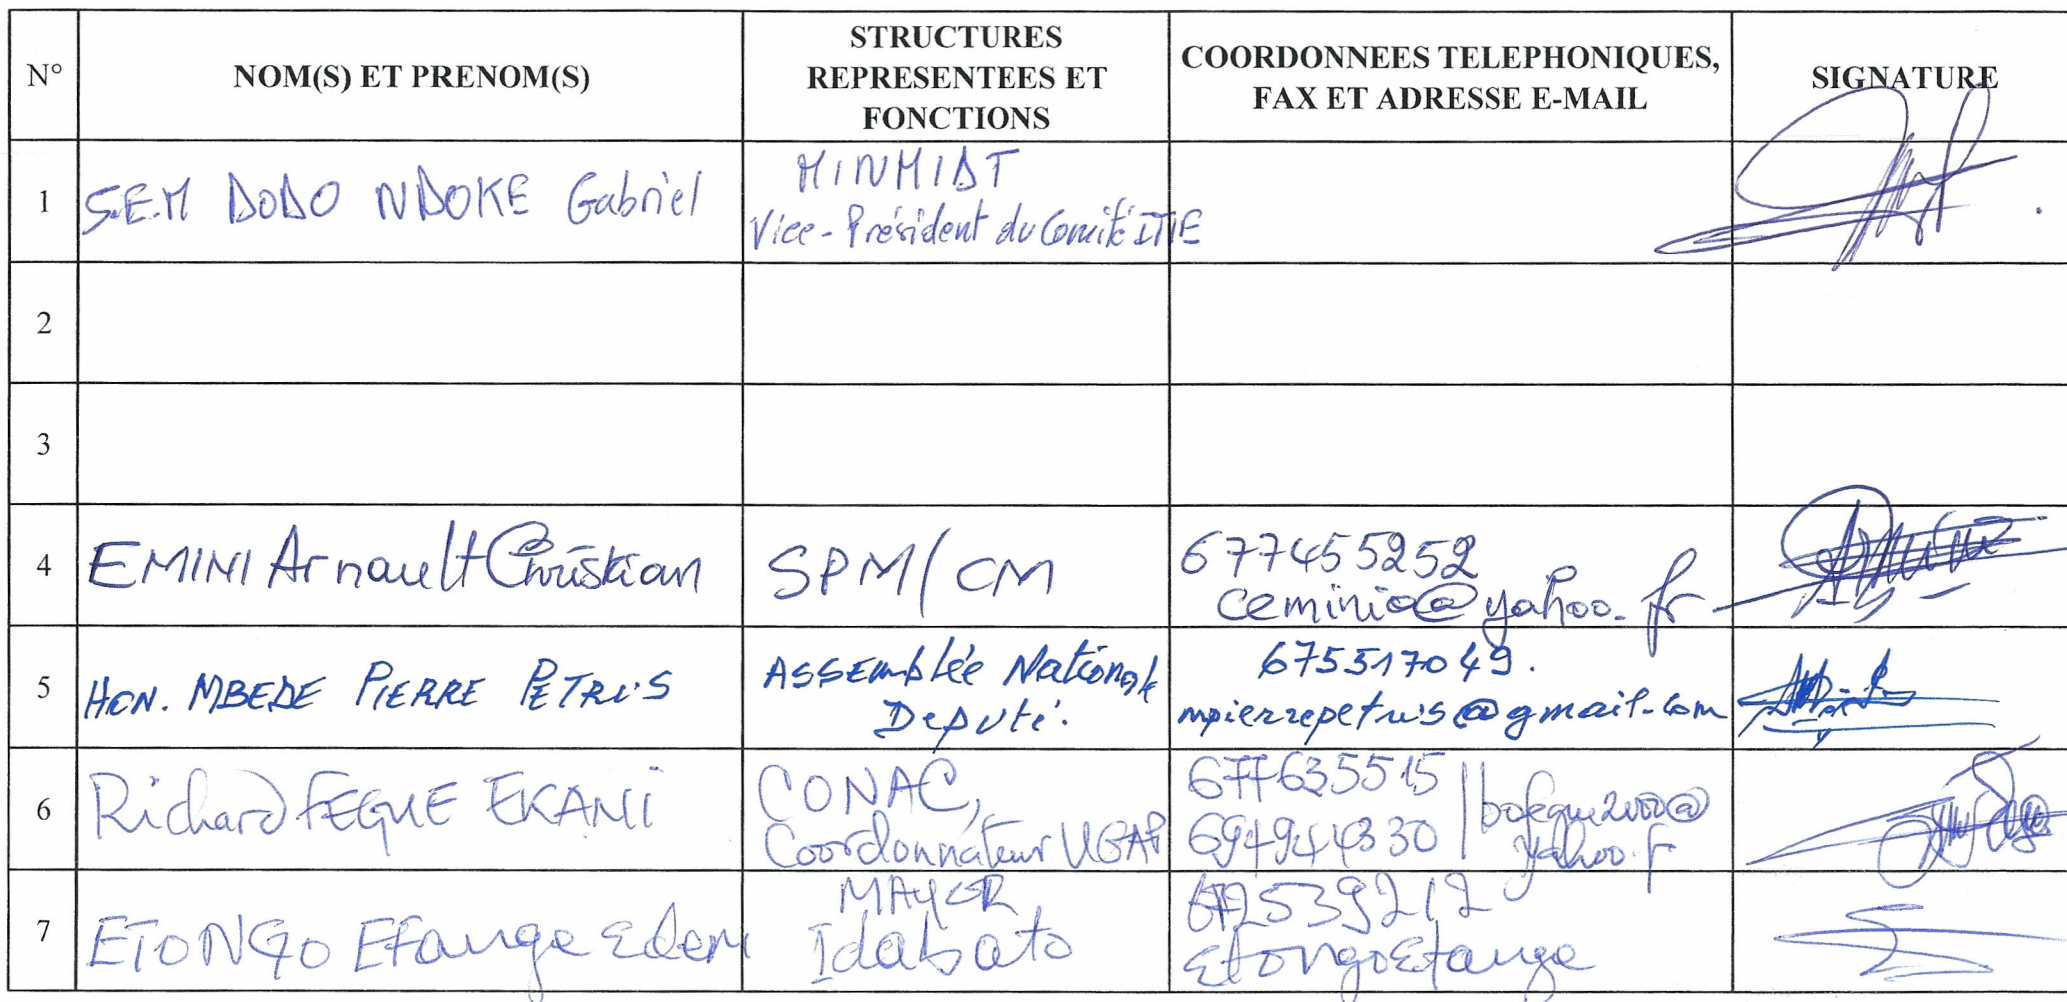 N°
NOM(S) ET PRENOM(S)
STRUCTURES
REPRESENTEES ET
FONCTIONS
COORDONNEES TELEPHONIQUES,
FAX ET ADRESSE E-MAIL
SIGNATURE
1
S.E.M DODO NDOKE Gabriel
MINMIDT
Vice-Président du Comité ITIE
2
3
4
EMINI Arnault Christian
SPM/CM
677455252
ceminia@yahoo.fr
5
HON. MBEDE PIERRE PETRUS
ASSEMblée Nationale
Député.
675517049.
mpierrepetrus@gmail.com
6
Richard FEGUE EKANI
CONAC,
Coordonnateur UGAP
677635515
694944330
bofegue2000@
yahoo.fr
7
ETONGO Efange Edem
MAYOR
Idabato
Etongo Efange